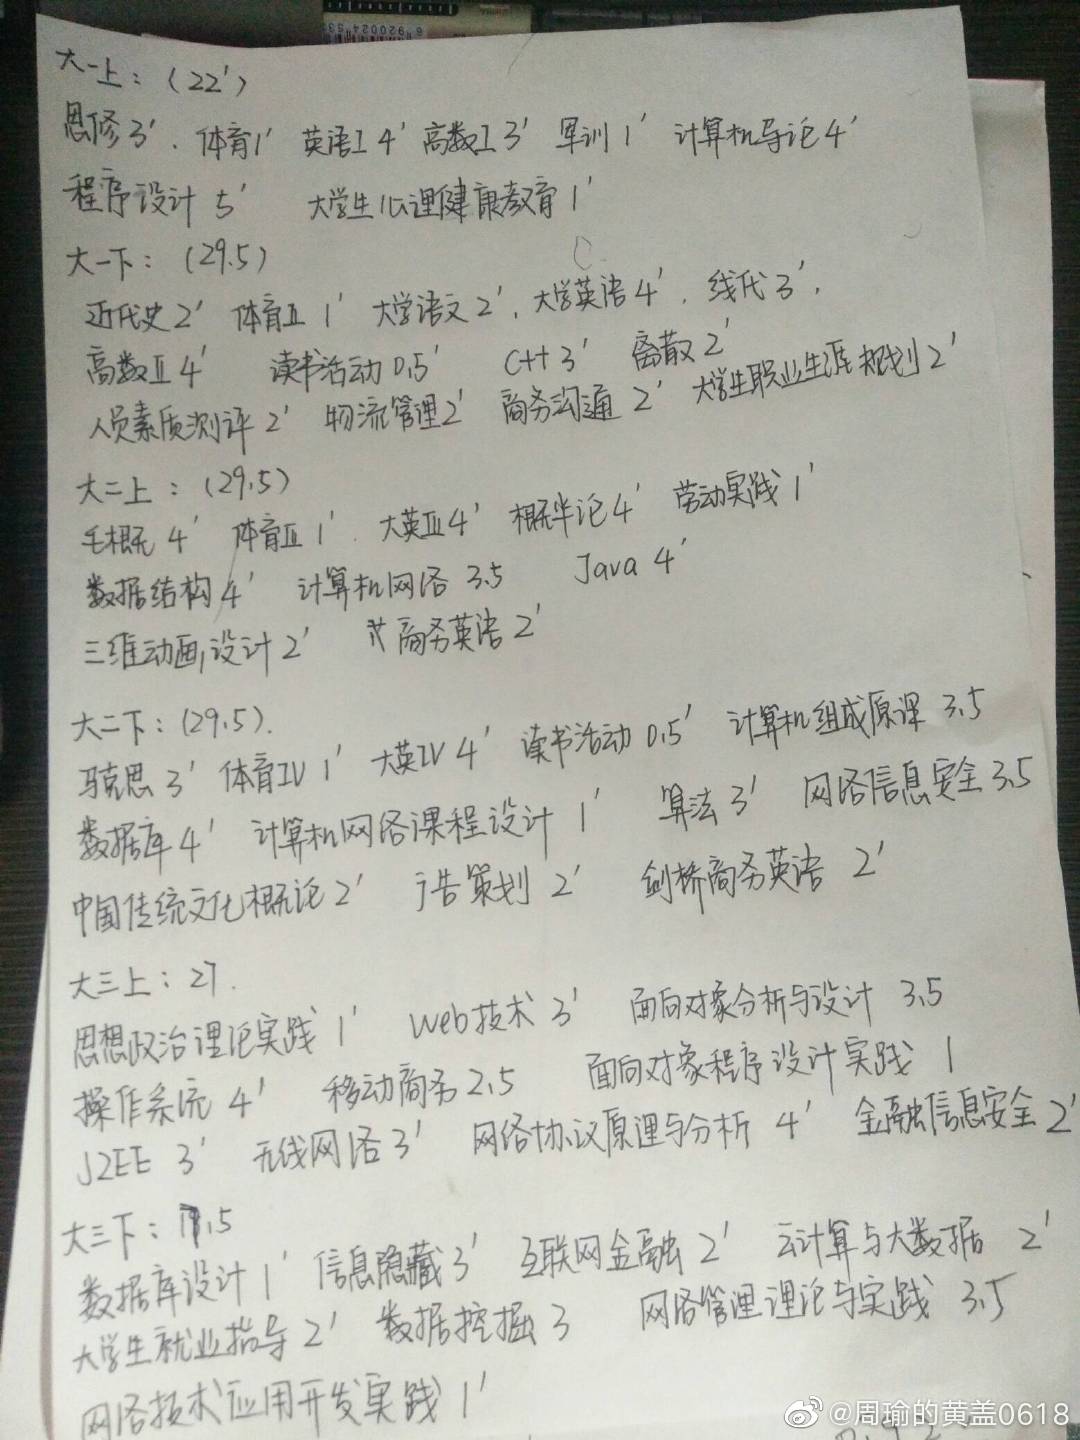 大一上：（22'）
思修3'、体育1' 英语I 4' 高数I 3' 军训1' 计算机导论4'
程序设计5' 大学生心理健康教育1'
大一下：（29.5）
近代史2' 体育II 1' 大学语文2'、大学英语4'、线代3'、
高数II 4' 读书活动0.5' C++ 3' 离散2'
人员素质测评2' 物流管理2' 商务沟通2' 大学生职业生涯规划2'
大二上：（29.5）
毛概 4' 体育II 1' 大英II 4' 概率论4' 劳动实践1'
数据结构4' 计算机网络 3.5 Java 4'
三维动画设计2' 商务英语2'
大二下：（29.5）.
马克思3' 体育IV 1' 大英IV 4' 读书活动0.5' 计算机组成原课 3.5
数据库4' 计算机网络课程设计1' 算法3' 网络信息安全3.5
中国传统文化概论2' 广告策划2' 剑桥商务英语2'
大三上：27.
思想政治理论实践1' Web技术3' 面向对象分析与设计 3.5
操作系统4' 移动商务2.5 面向对象程序设计实践 1
J2EE 3' 无线网络3' 网络协议原理与分析 4' 金融信息安全2'
大三下：.5
数据库设计1' 信息隐藏3' 互联网金融2' 云计算与大数据 2'
大学生就业指导2' 数据挖掘3 网络管理理论与实践 3.5
网络技术应用开发实践1'
@周瑜的黄盖0618